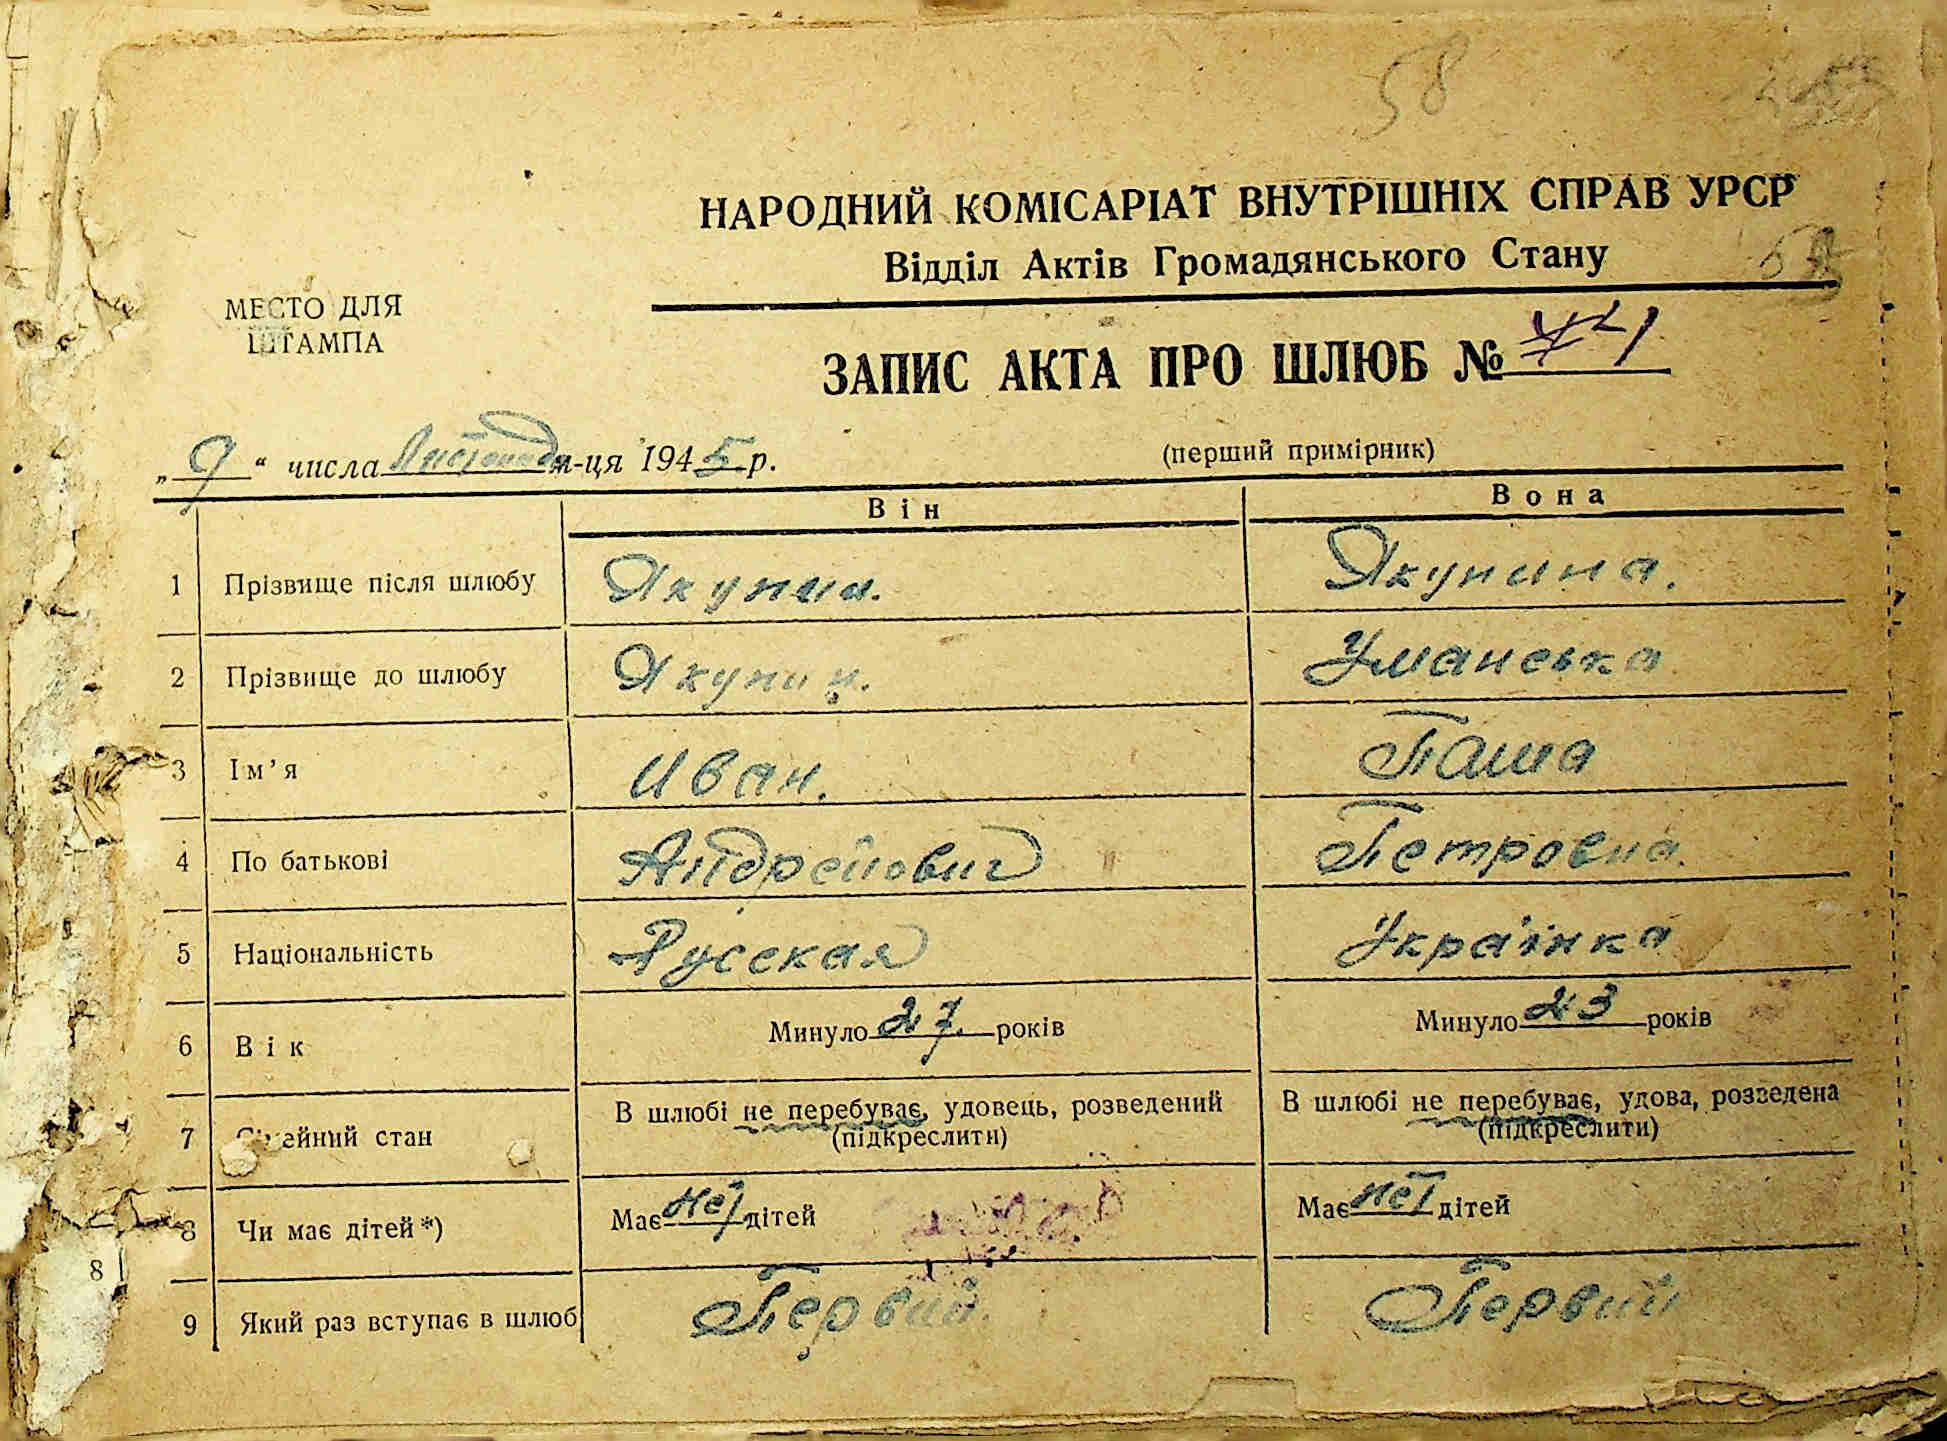 58
НАРОДНИЙ КОМІСАРІАТ ВНУТРІШНІХ СПРАВ УРСР
Відділ Актів Громадянського Стану
МЕСТО ДЛЯ
ШТАМПА
ЗАПИС АКТА ПРО ШЛЮБ №
„ 9 “ числа Листопада м-ця 1945 р.
(перший примірник)
Він Вона
1 Прізвище після шлюбу Якунин. Якунина.
2 Прізвище до шлюбу Якунин. Уманська
3 Ім’я Иван. Паша
4 По батькові Андрейович Петровна.
5 Національність Русская Українка
6 Вік Минуло 27. років Минуло 23 років
7 стан В шлюбі не перебуває, удовець, розведений (підкреслити) В шлюбі не перебуває, удова, розведена (підкреслити)
8 Чи має дітей *) Має неї дітей Має неї дітей
8
9 Який раз вступає в шлюб Первий. Первий